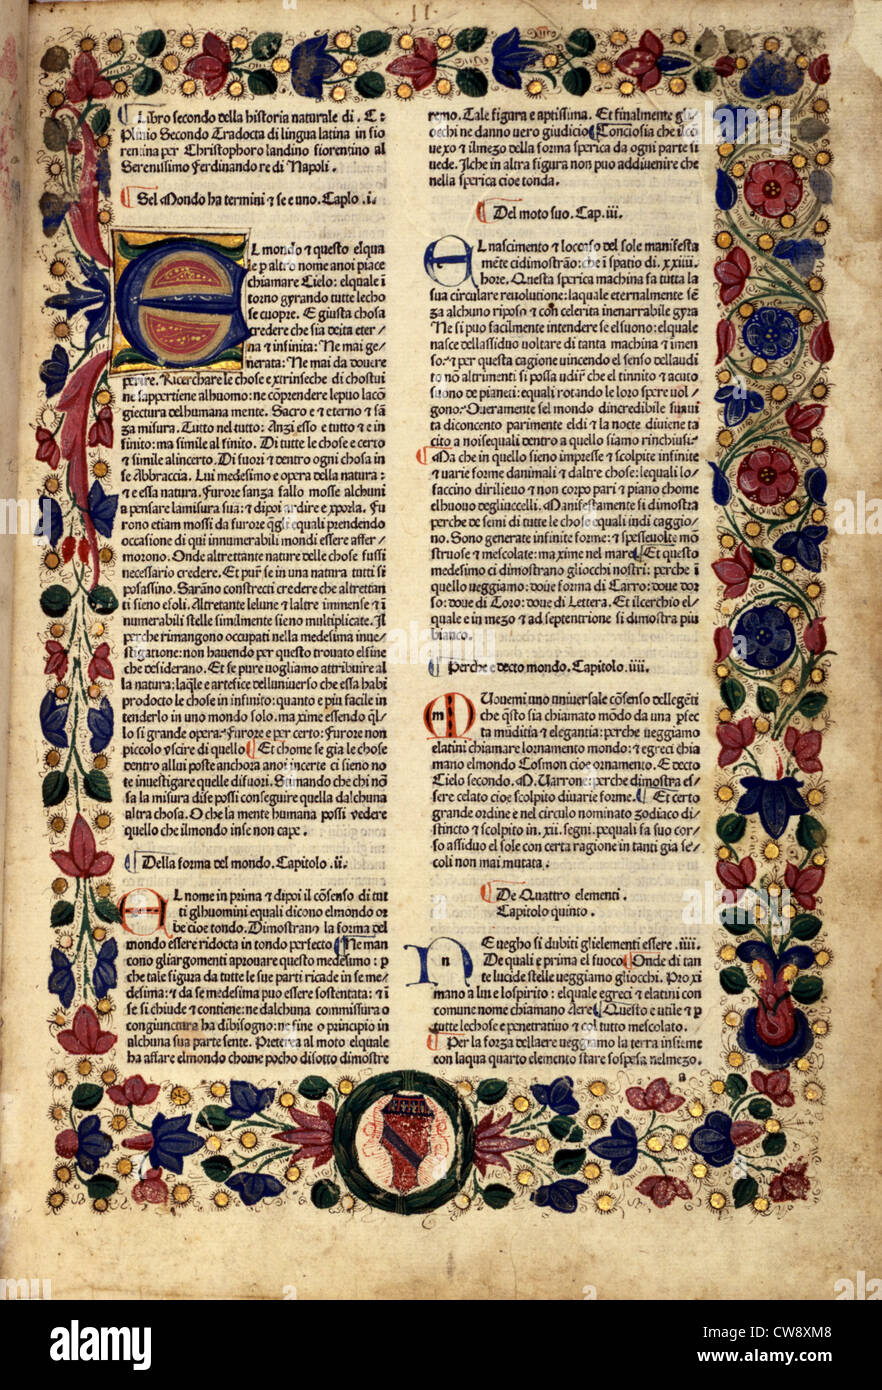 II
Libro secondo della historia naturale di . C :
Plinio Secondo Tradocta di lingua latina in fio
rentina per Christophoro landino fiorentino al
Serenissimo Ferdinando re di Napoli .
Sel Mondo ha termini ⁊ se e uno. Caplo .i.
EL mondo ⁊ questo elqua
le p altro nome anoi piace
chiamare Cielo: elquale ĩ
torno gyrando tutte lecho
se cuopre. E giusta chosa
credere che sia deita eter/
na ⁊ infinita: Ne mai ge/
nerata: Ne mai da douere
perire. Ricerchare le chose extrinseche di chostui
ne sappertiene alhuomo: ne cõprendere lepuo lacõ
giectura delhumana mente. Sacro e ⁊ eterno ⁊ sã
za misura. Tutto nel tutto: Anzi esso e tutto ⁊ e in
finito: ma simile al finito. Di tutte le chose e certo
⁊ simile alincerto. Di fuori ⁊ dentro ogni chosa in
se Abbraccia. Lui medesimo e opera della natura :
⁊ e essa natura. Furore sanza fallo mosse alchuni
a pensare lamisura sua: ⁊ dipoi ardire exporla. Fu
rono etiam mossi da furore q̃gli equali prendendo
occasione di qui innumerabili mondi essere affer/
morono. Onde altrettante nature delle chose fussi
necessario credere. Et pur se in una natura tutti si
posassino. Sarãno constrecti credere che altrettan
ti sieno esoli. Altretante lelune ⁊ laltre immense ⁊ ĩ
numerabili stelle similmente sieno multiplicate. Il
perche rimangono occupati nella medesima inue/
stigatione: non hauendo per questo trouato elfine
che desiderano. Et se pure uogliamo attribuire al
la natura: laq̃le e artefice delluniuerso che essa habi
prodocto le chose in infinito: quanto e piu facile in
tenderlo in uno mondo solo. maxime essendo q̃l/
lo si grande opera. Furore e per certo: Furore non
piccolo vscire di quello Et chome se gia le chose
dentro allui poste anchora anoi incerte ci sieno no
te inuestigare quelle difuori. Stimando che chi nõ
sa la misura dise possi conseguire quella dalchuna
altra chosa. O che la mente humana possi vedere
quello che ilmondo inse non cape.
Della forma del mondo. Capitolo .ii.
AL nome in prima ⁊ dipoi il cõsenso di tut
ti glhuomini equali dicono elmondo or
be cioe tondo. Dimostrano la forma del
mondo essere ridocta in tondo perfecto Ne man
cono gliargomenti aprouare questo medesimo : p
che tale figura da tutte le sue parti ricade in se me/
desima: ⁊ da se medesima puo essere sostentata: ⁊ ĩ
se si chiude ⁊ contiene: ne dalchuna commissura o
congiunctura ha dibisogno: ne fine o principio in
alchuna sua parte sente. Preterea al moto elquale
ha affare elmondo chome pocho disotto dimostre
remo. Tale figura e aptissima. Et finalmente gli
occhi ne danno uero giudicio Conciosia che ilcõ
uexo ⁊ ilmezo della forma sperica da ogni parte si
uede. Ilche in altra figura non puo addiuenire che
nella sperica cioe tonda.
Del moto suo. Cap. iii.
AL nascimento ⁊ loccaso del sole manifesta
mẽte cidimostrão: che ĩ spatio di .xxiiii.
hore. Questa sperica machina fa tutta la
sua circulare reuolutione: laquale eternalmente sẽ
za alchuno riposo ⁊ con celerita inenarrabile gyra
Ne si puo facilmente intendere se elsuono: elquale
nasce dellassiduo uoltare di tanta machina ⁊ imen
so: ⁊ per questa cagione uincendo el senso dellaudi
to nõ altrimenti si possa udir che el tinnito ⁊ acuto
suono de pianeti: equali rotando le loro spere uol/
gono. Oueramente sel mondo dincredibile suaui
ta diconcento parimente eldi ⁊ la nocte diuiene ta
cito a noisequali dentro a quello siamo rinchiusi.
Ma che in quello sieno impresse ⁊ scolpite infinite
⁊ uarie forme danimali ⁊ daltre chose: lequali lo/
faccino dirilieuo ⁊ non corpo pari ⁊ piano chome
elhuouo degliuccelli. Manifestamente si dimostra
perche de semi di tutte le chose equali indi caggio/
no. Sono generate infinite forme: ⁊ spesseuolte mõ
struose ⁊ mescolate: maxime nel mare Et questo
medesimo ci dimostrano gliocchi nostri: perche ĩ
quello ueggiamo: doue forma di Carro: doue dor
so: doue di Toro: doue di Lettera. Et ilcerchio el/
quale e in mezo ⁊ ad septentrione si dimostra piu
bianco.
Perche e decto mondo. Capitolo .iiii.
MUouemi uno uniuersale cõsenso dellegẽti
che q̃sto sia chiamato mõdo da una pfec
ta mũditia ⁊ elegantia: perche ueggiamo
elatini chiamare lornamento mondo: ⁊ egreci chia
mano elmondo Cosmon cioe ornamento. E decto
Cielo secondo. M. Varrone: perche dimostra es/
sere celato cioe scolpito diuarie forme. Et certo
grande ordine e nel circulo nominato zodiaco di/
stincto ⁊ scolpito in .xii. segni. pequali fa suo cor/
so assiduo el sole con certa ragione in tanti gia se/
coli non mai mutata.
De Quattro elementi .
Capitolo quinto .
NE uegho si dubiti glielementi essere .iiii.
De quali e prima el fuoco Onde di tan
te lucide stelle ueggiamo gliocchi. Proxi
mano a lui e lospirito: elquale egreci ⁊ elatini con
comune nome chiamano Aere Questo e utile ⁊ p
tutte lechose e penetratiuo ⁊ col tutto mescolato.
Per la forza dellaere ueggiamo la terra insieme
con laqua quarto elemento stare sospesa nelmezo.
a
alamy
Image ID: CW8XM8
www.alamy.com